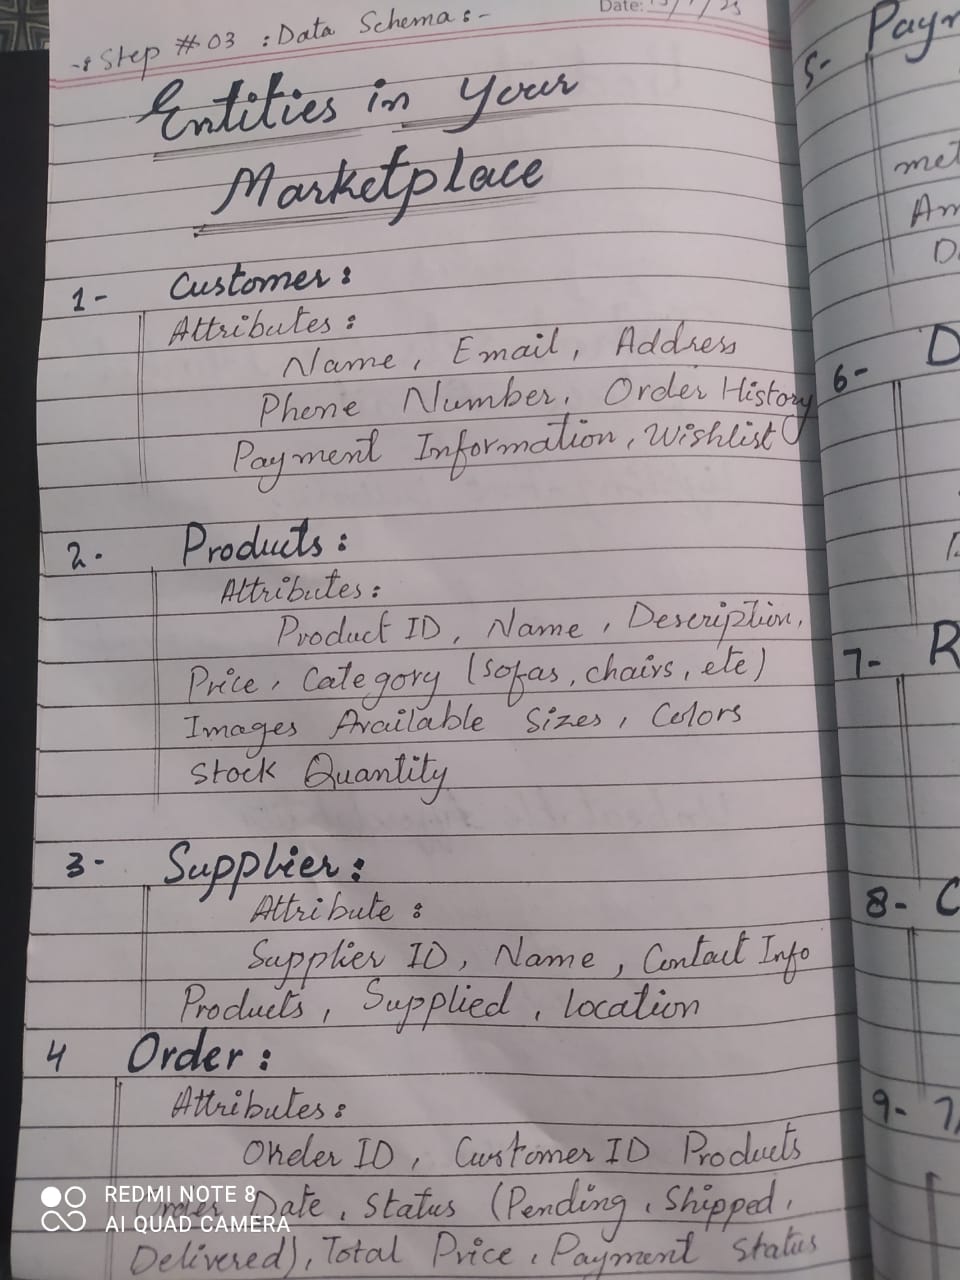 -: Step # 03 : Data Schema :-
Date:
Entities in your
Marketplace
1- Customer :
Attributes :
Name, Email, Address
Phone Number, Order History
Payment Information, Wishlist
2. Products :
Attributes :
Product ID, Name, Description,
Price, Category (sofas, chairs, etc)
Images Available Sizes, Colors
Stock Quantity
3- Supplier :
Attribute :
Supplier ID, Name, Contact Info
Products, Supplied, location
4 Order :
Attributes :
Order ID, Customer ID Products
Order Date, Status (Pending, Shipped,
Delivered), Total Price, Payment Status
5-
6- D
7- R
8- C
9-
REDMI NOTE 8
AI QUAD CAMERA